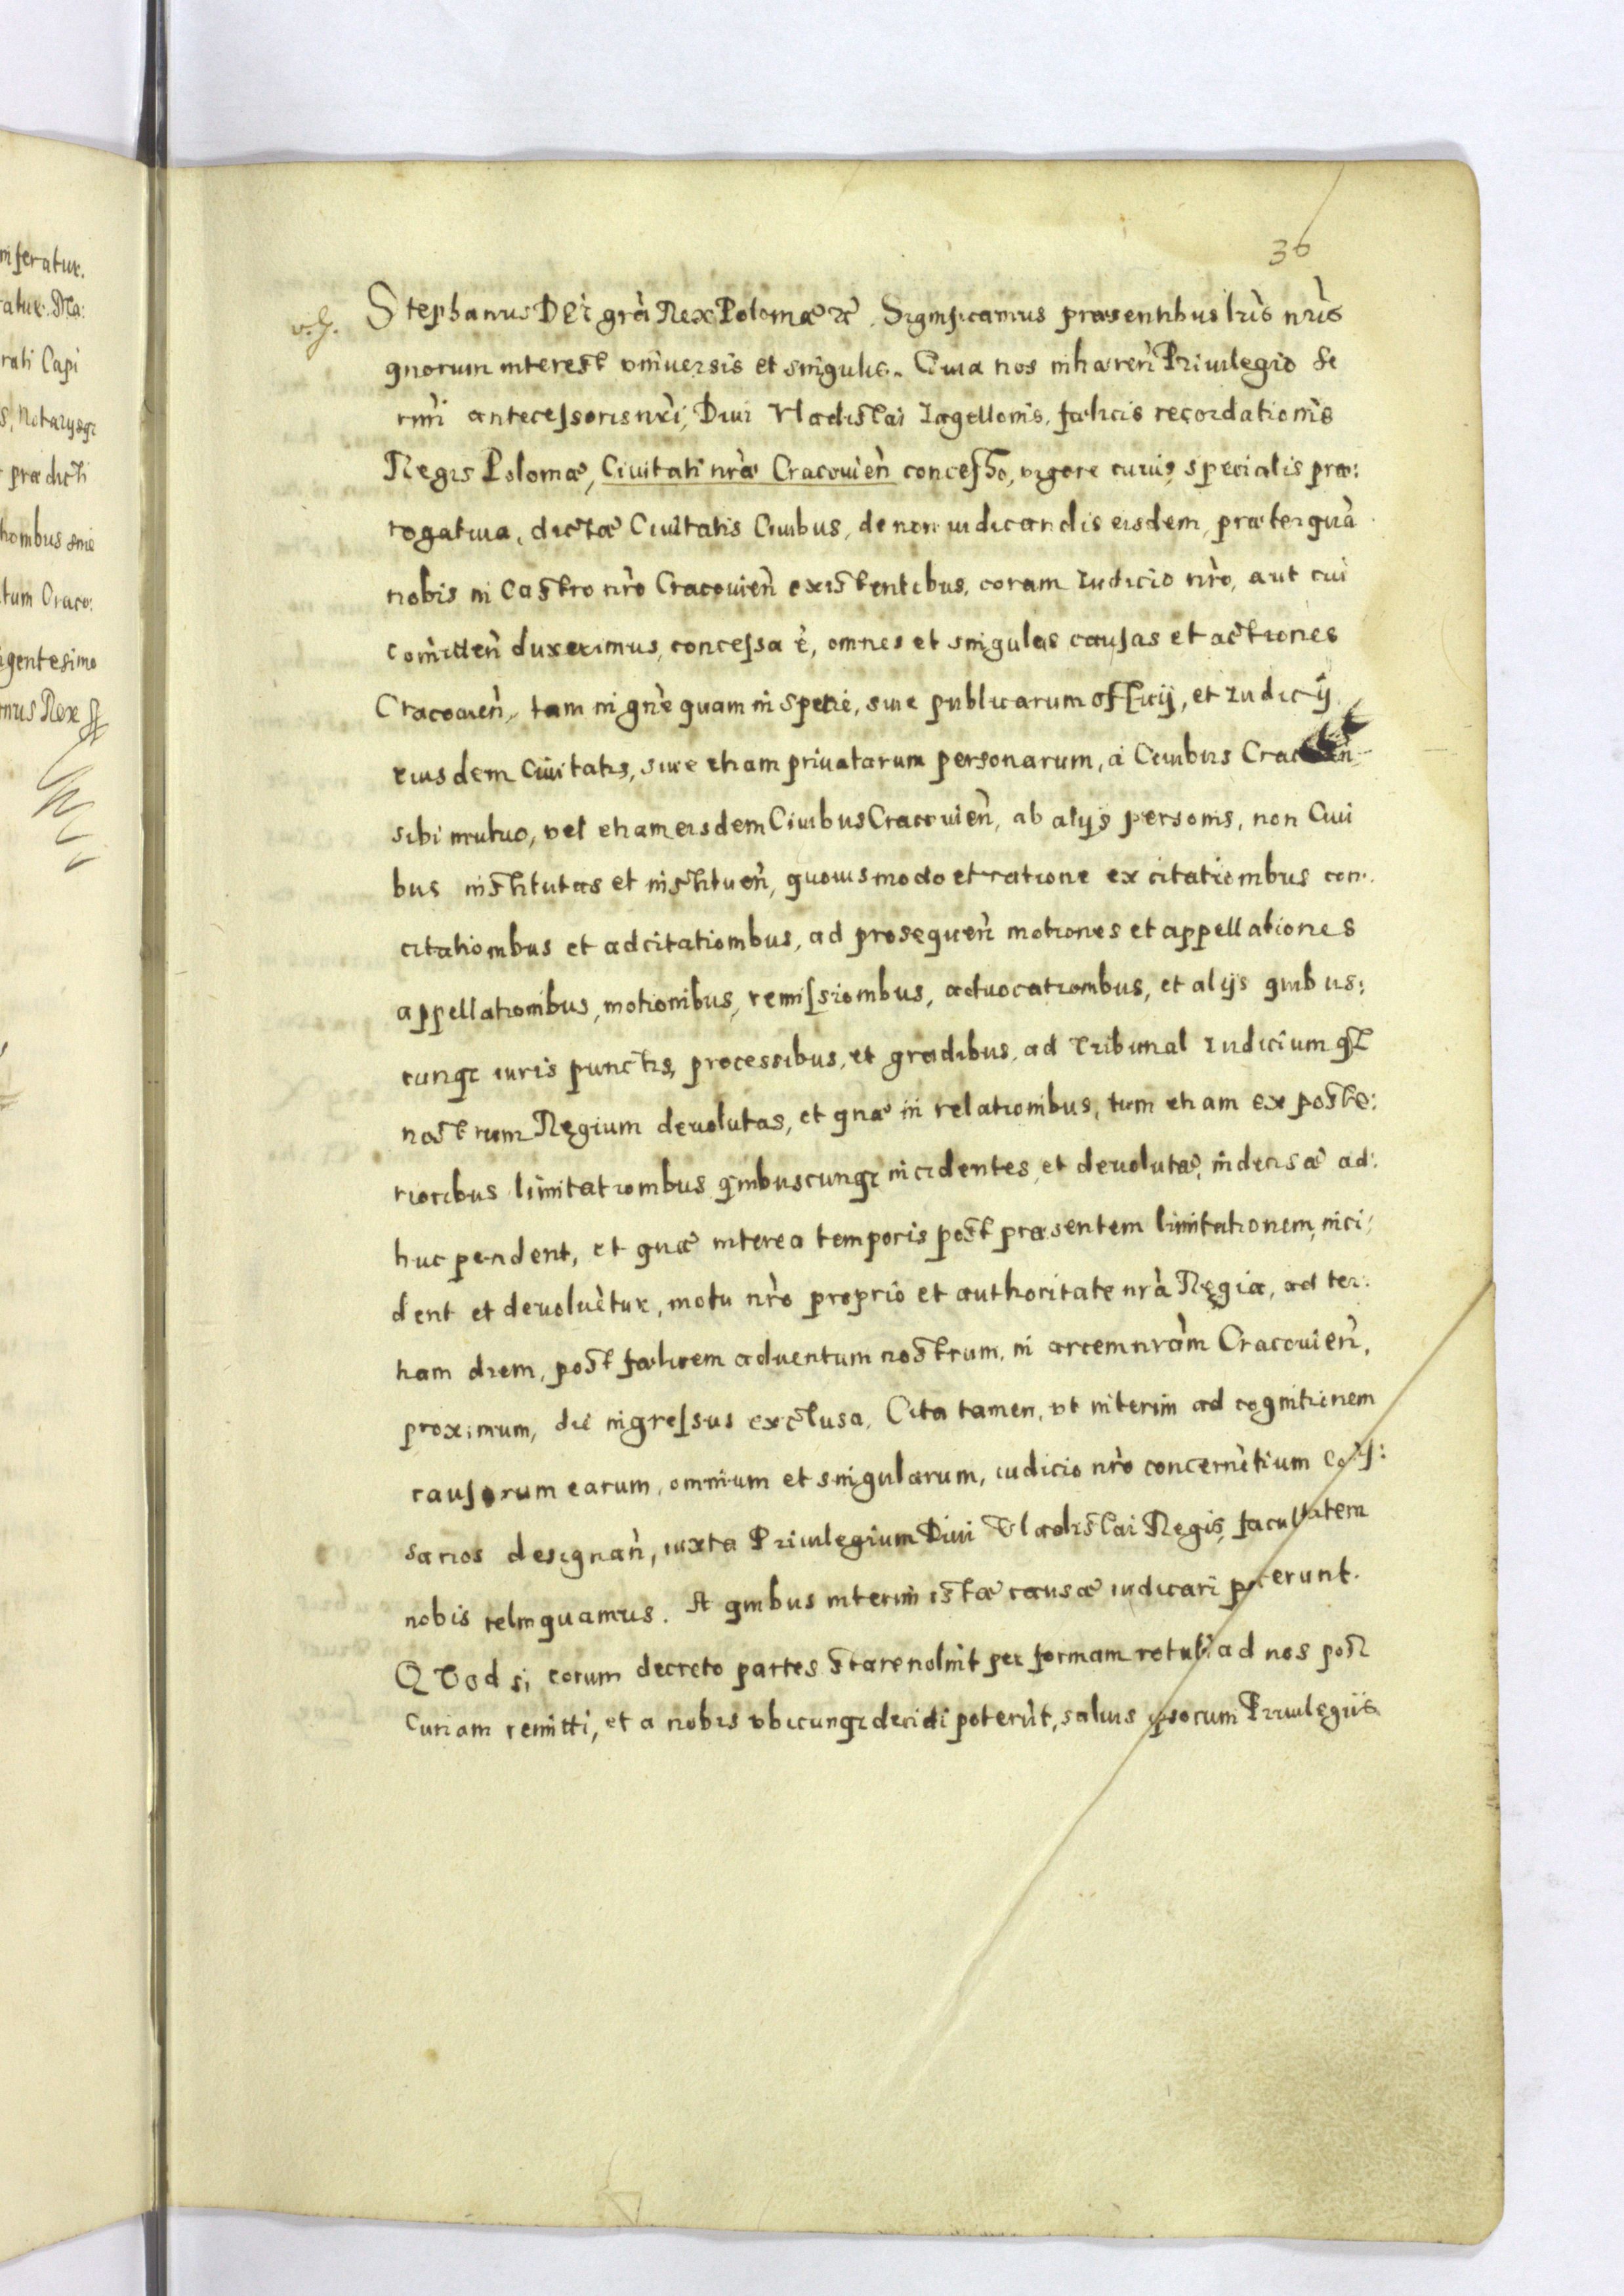 36
Stephanus DEI grã Rex Poloniæ &c. Significamus præsentibus lr̃is nr̃is
quorum interest vniuersis et singulis. Quia nos inhæreñ Priuilegio Se
rmi antecessoris nr̃i, Diui Vladislai Iagellonis, fælicis recordationis
Regis Poloniæ, Ciuitati nr̃æ Cracouieñ concesso, vigore cuius specialis præ:
rogatiua, dictæ Ciuitatis Ciuibus, de non iudicandis eisdem, præterquã
nobis in Castro nr̃o Cracouieñ existentibus, coram Iudicio nr̃o, aut cui
com̃itteñ duxerimus, concessa ẽ, omnes et singulas causas et actiones
Cracouieñ, tam in gñe quam in specie, siue publicarum officij, et Iudicij
eiusdem Ciuitatis, siue etiam priuatarum personarum, a Ciuibus Cracouieñ
sibi mutuo, vel etiam eisdem Ciuibus Cracouieñ, ab alijs personis, non Ciui
bus institutas et institueñ, quouis modo et ratione ex citationibus con:
citationibus et adcitationibus, ad prosequeñ motiones et appellationes
appellationibus, motionibus, remissionibus, aduocationibus, et alijs quibus:
cunq3 iuris punctis, processibus, et gradibus, ad Tribunal Iudicium q3
nostrum Regium deuolutas, et quæ in relationibus, tum etiam ex poste:
rioribus limitationibus quibuscunq3 incidentes, et deuolutæ, indecisæ ad:
huc pendent, et quæ interea temporis post præsentem limitationem, inci:
dent et deuoluẽtur, motu nr̃o proprio et authoritate nr̃a Regia, ad ter:
tiam diem, post fælicem aduentum nostrum, in arcem nr̃am Cracouieñ,
proximum, die ingressus exclusa. Cita tamen, vt interim ad cognitionem
causarum earum, omnium et singularum, iudicio nr̃o concernẽtium Com̃is:
sarios designañ, iuxta Priuilegium Diui Vladislai Regis, facultatem
nobis relinquamus. A quibus interim istæ causæ iudicari poterunt.
QVod si eorum decreto partes stare nolint per formam rotuli ad nos post
Curiam remitti, et a nobis vbicunq3 decidi poterũt, saluis ipsorum Priuilegijs
nferatur.
atur. Ma:
rati Capi
s, Notarysq3
prædicti
tum Craco:
igentesimo
nus Rex